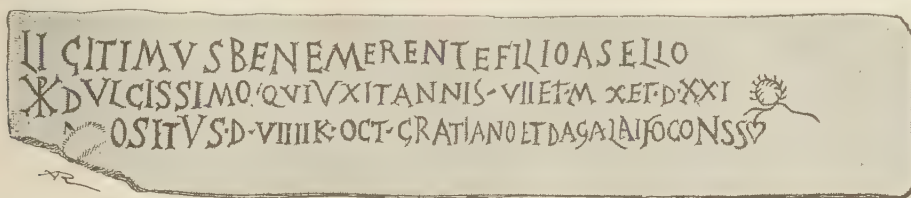 LIGITIMVS BENEMERENTE FILIO ASELLO
☧ DVLCISSIMO · QVI VXIT ANNIS - VII ET · M XET · D · XXI
OSITVS · D · VIIIIK · OCT · GRATIANO ET DAGALAIFO CONSS